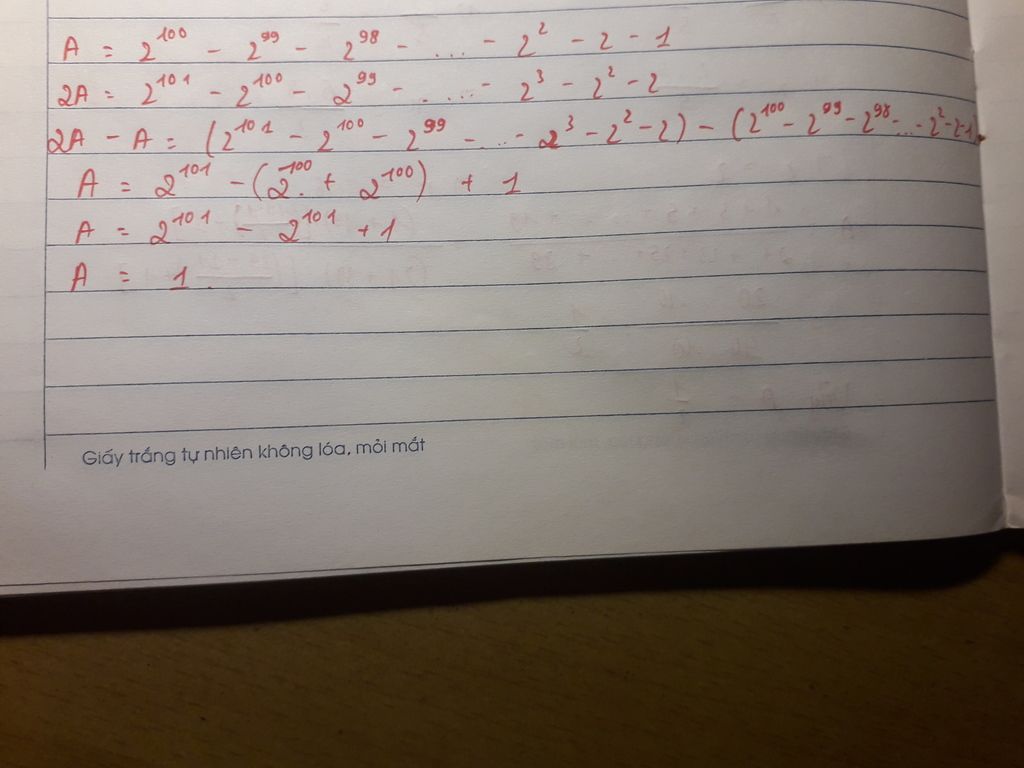 A = 2^100 - 2^99 - 2^98 - .... - 2^2 - 2 - 1
2A = 2^101 - 2^100 - 2^99 - ..... - 2^3 - 2^2 - 2
2A - A = (2^101 - 2^100 - 2^99 - ... - 2^3 - 2^2 - 2) - (2^100 - 2^99 - 2^98 - ... - 2^2 - 2 - 1)
A = 2^101 - (2^100 + 2^100) + 1
A = 2^101 - 2^101 + 1
A = 1
Giấy trắng tự nhiên không lóa, mỏi mắt